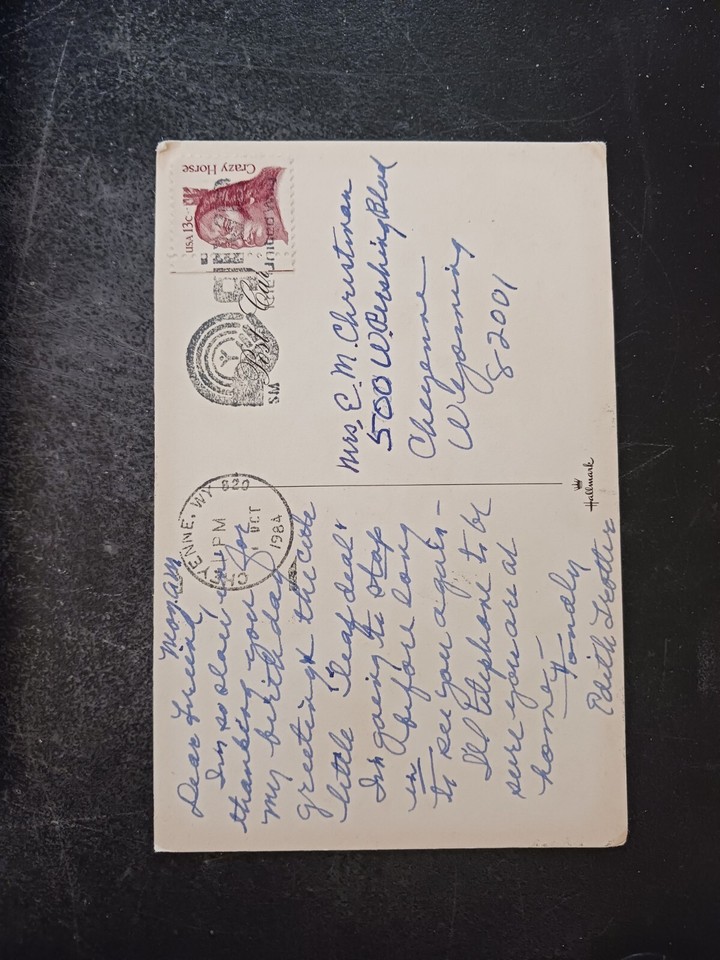 Mon. AM
Dear Friend,
I'm so slow in
thanking you for
my birthday
greeting & the cute
little
I'm going to stop
in before long
to see you again –
I'll telephone to be
sure you are at
home –
Fondly
Edith Trotter
YENNE, WY
PM
OCT
1984
Crazy Horse
USA 13c
Post Card
United Way
SM
Mrs. E. M. Christman
500 W. Pershing Blvd
Cheyenne
Wyoming
82001
Hallmark